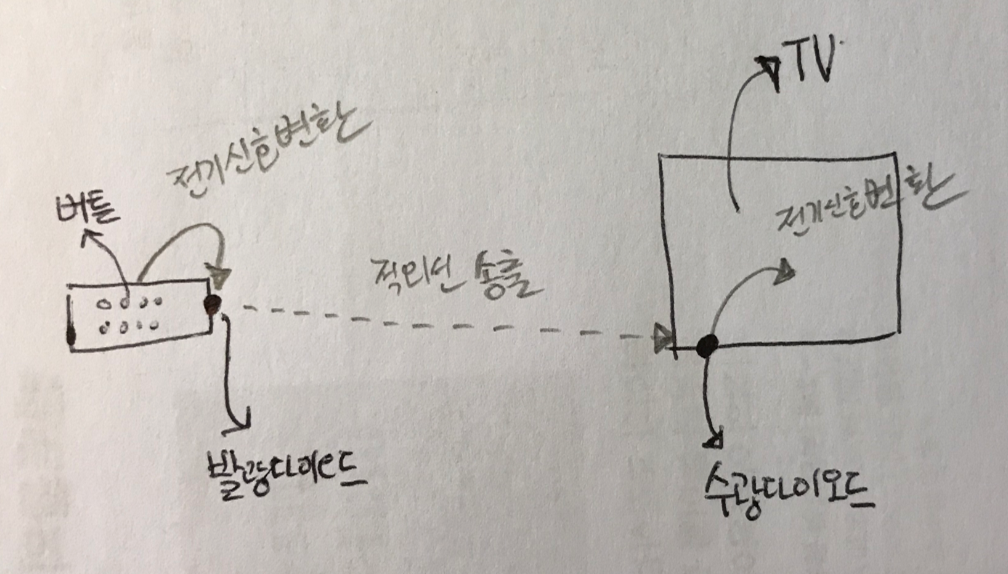 TV
전기신호변환
버튼
전기신호변환
적외선 송출
발광다이오드
수광다이오드